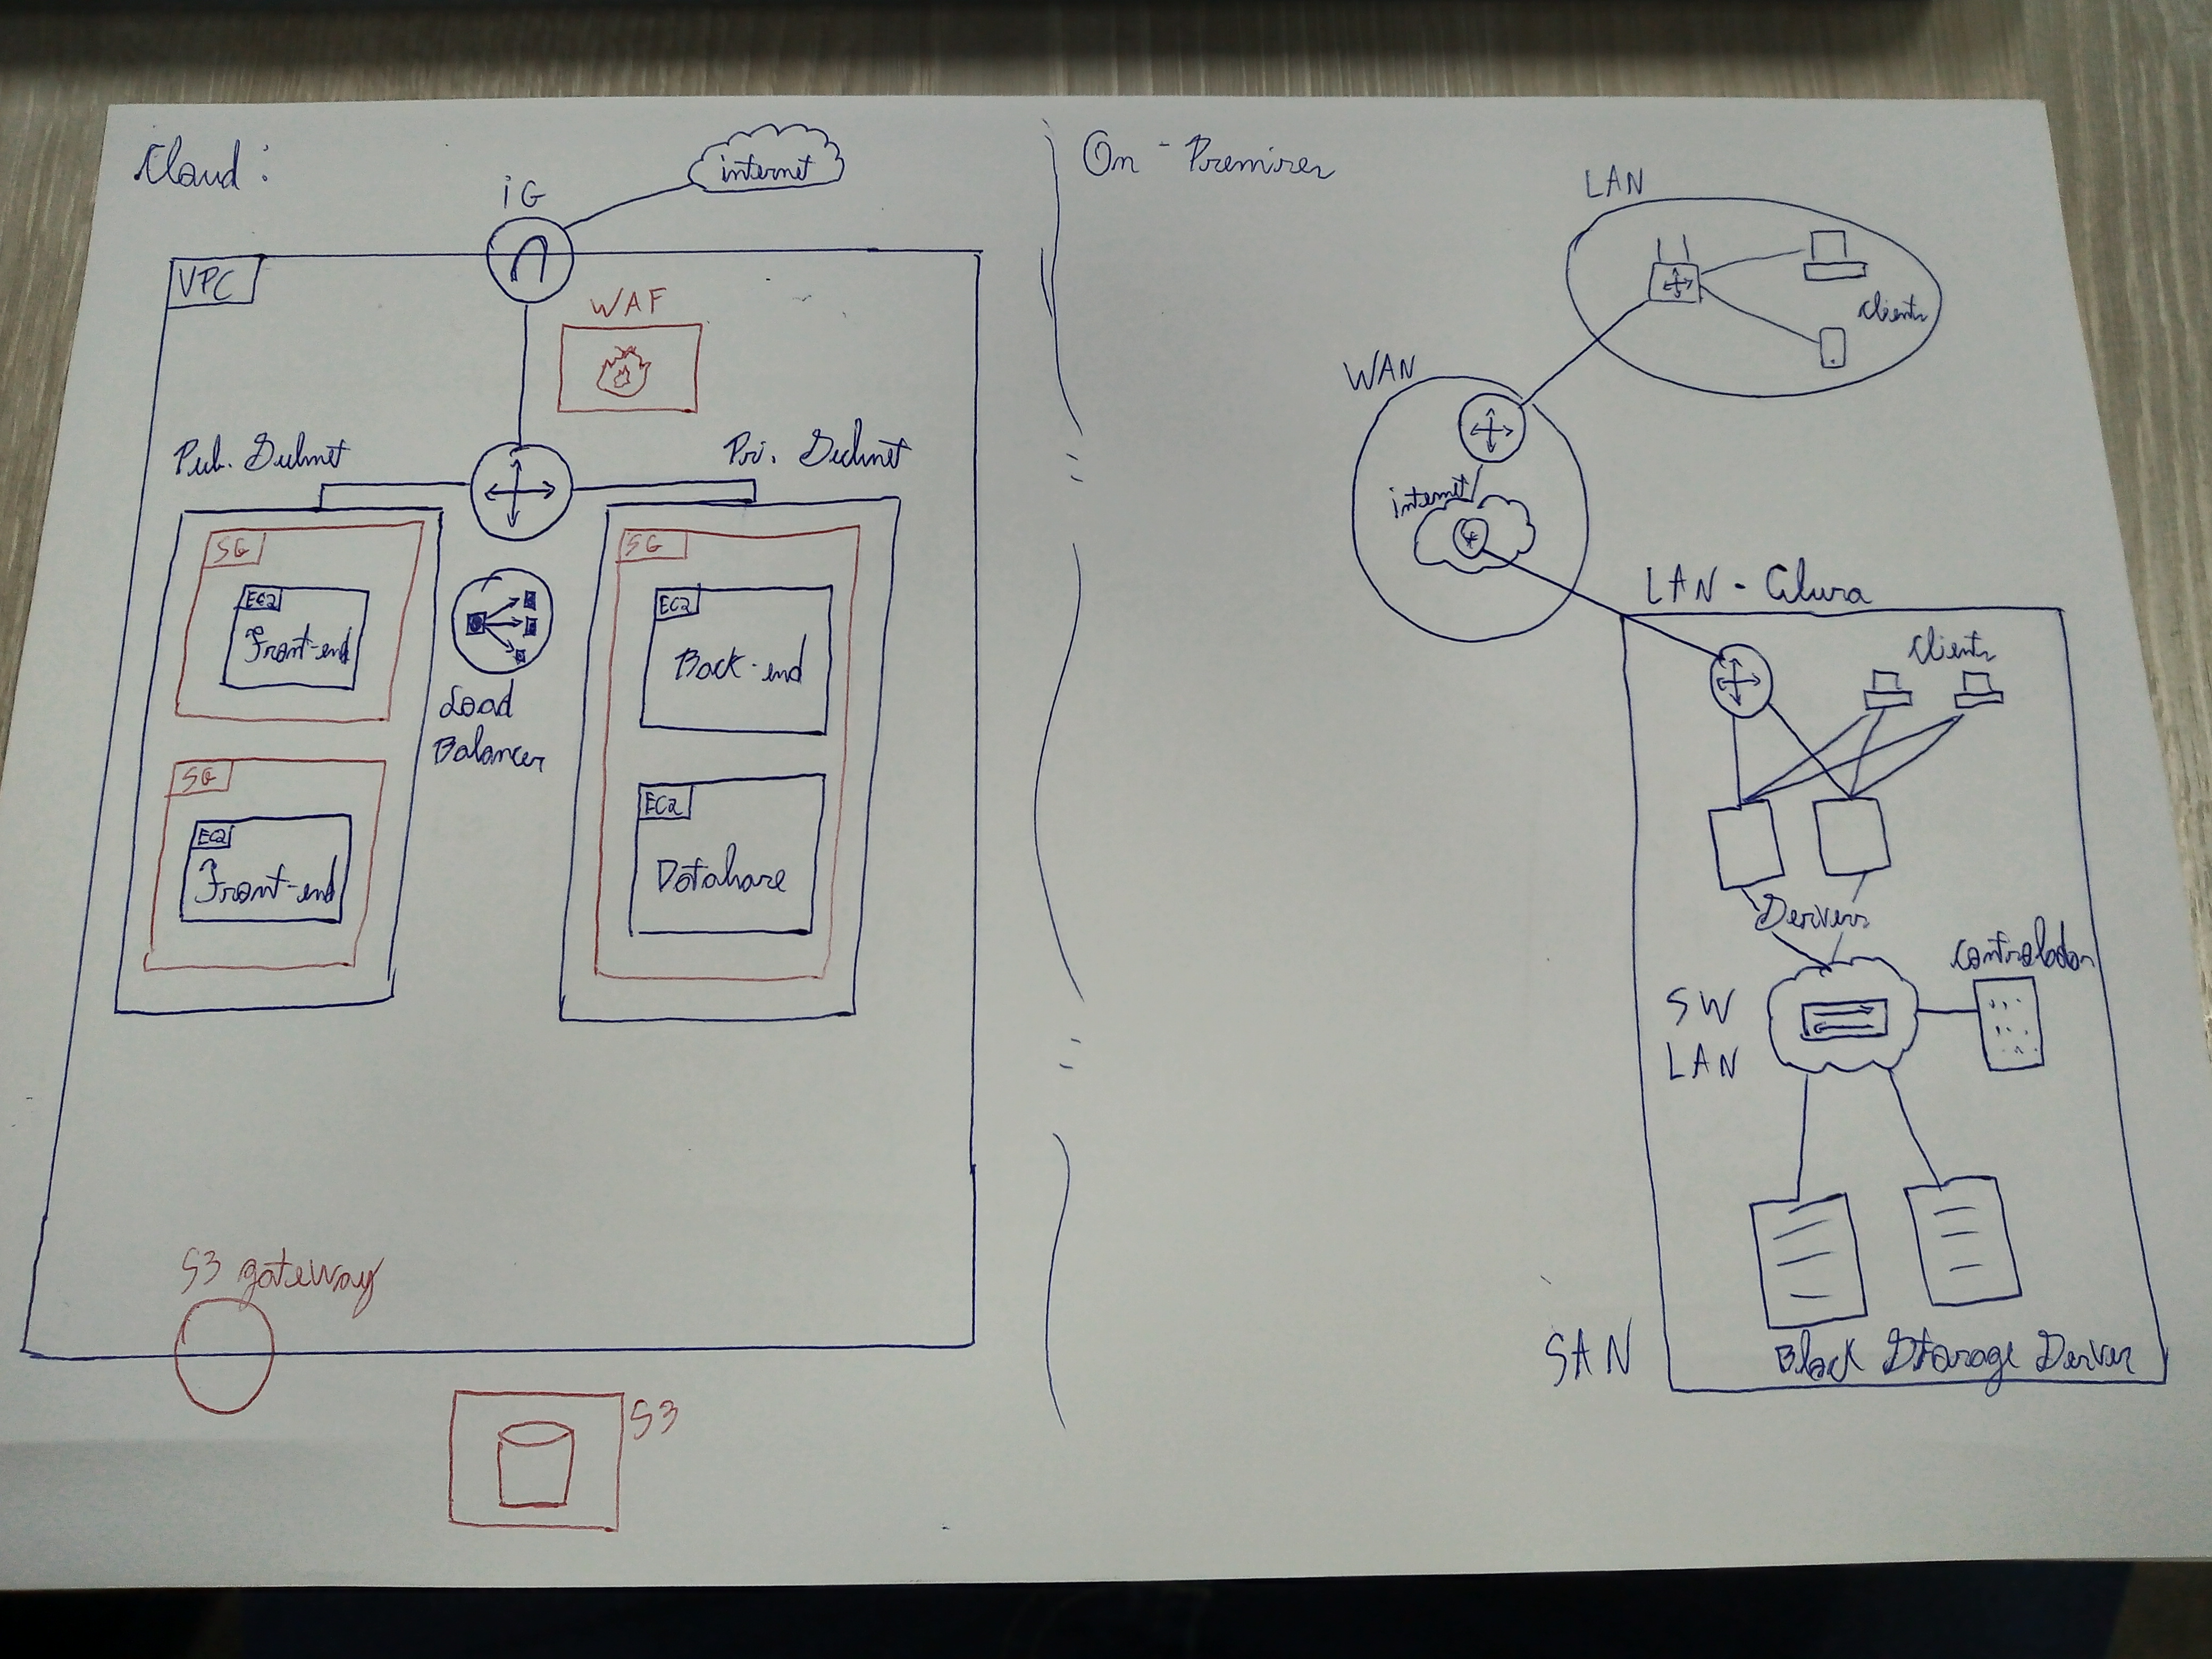 Cloud:
internet
iG
VPC
WAF
Pub. Subnet
Pri. Subnet
SG
EC2
Front-end
SG
EC2
Front-end
Load
Balancer
SG
EC2
Back-end
EC2
Database
S3 gateway
S3
On-Premises
LAN
Clients
WAN
internet
LAN -
Clients
Servers
SW
LAN
Controlador
SAN
Block Storage Server